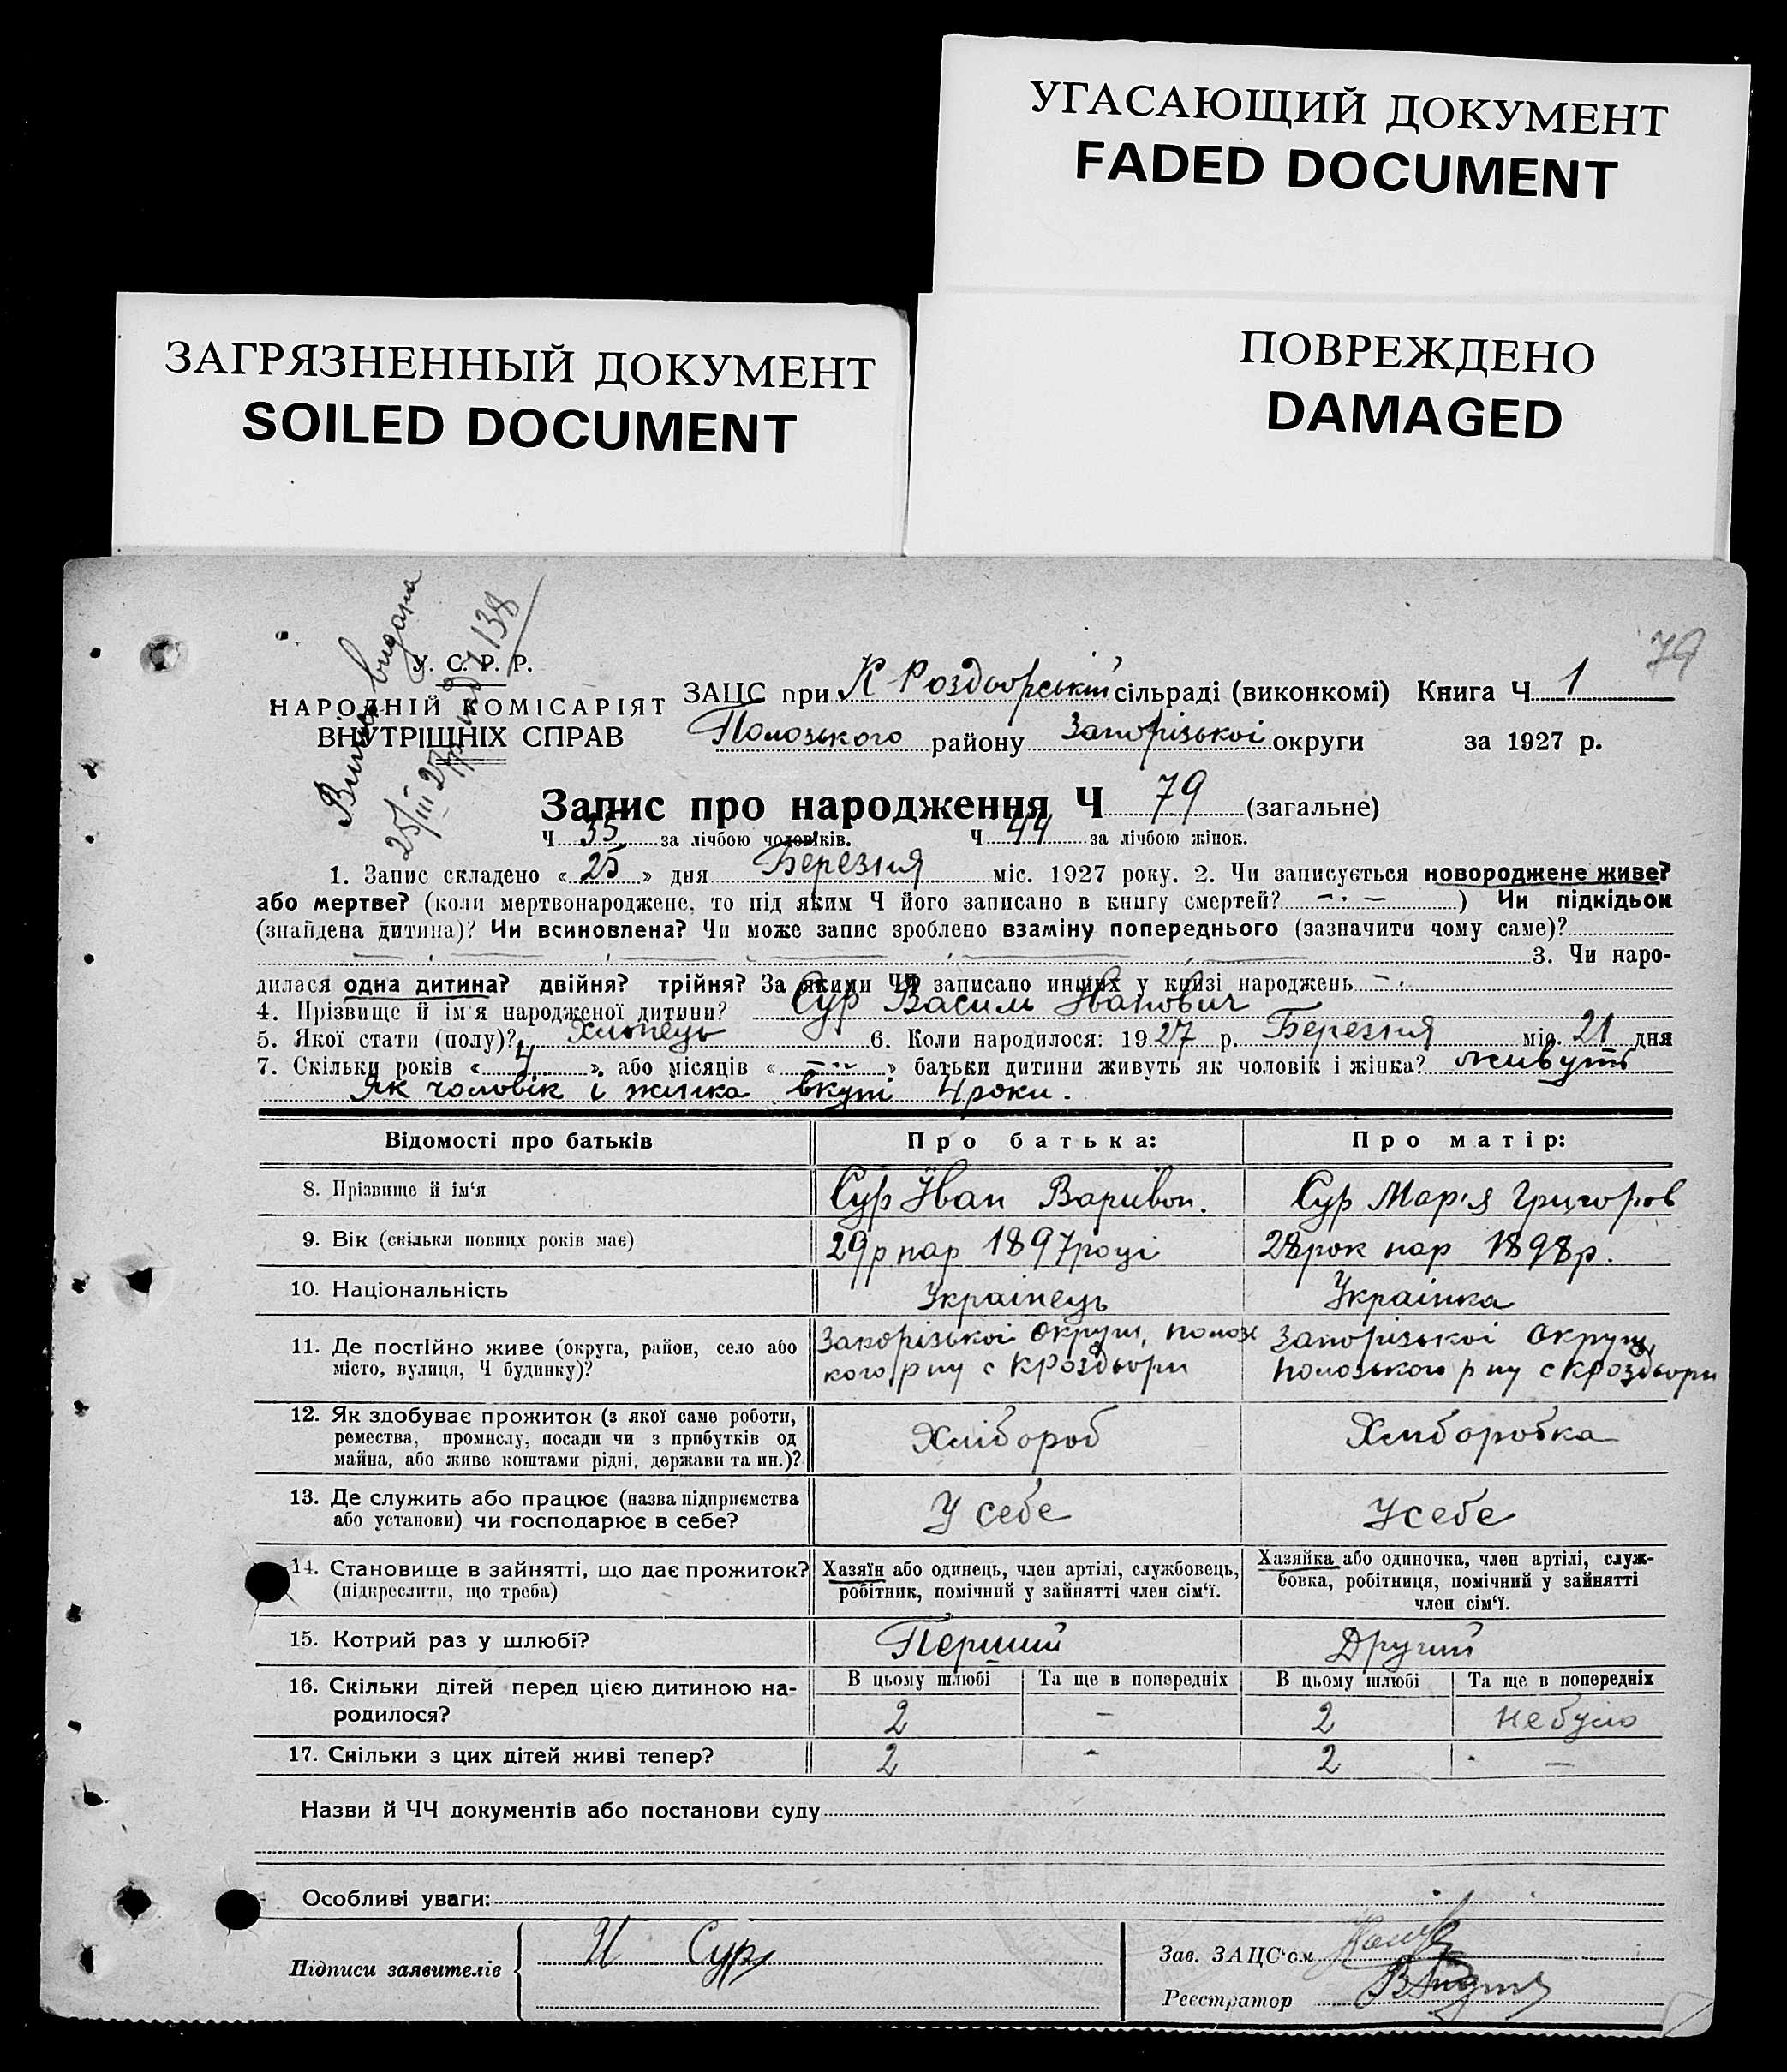 УГАСАЮЩИЙ ДОКУМЕНТ
FADED DOCUMENT
ЗАГРЯЗНЕННЫЙ ДОКУМЕНТ
SOILED DOCUMENT
ПОВРЕЖДЕНО
DAMAGED
79
Випис видана
25/III 27р під ч 138
У. С. Р. Р.
НАРОДНІЙ КОМІСАРІЯТ
ВНУТРІШНІХ СПРАВ
ЗАЦС при К-Роздорській сільраді (виконкомі) Книга Ч 1
Полозького району Запорізької округи за 1927 р.
Запис про народження Ч 79 (загальне)
Ч 35 за лічбою чоловіків. Ч 44 за лічбою жінок.
1. Запис складено « 25 » дня Березня міс. 1927 року. 2. Чи записується новороджене живе?
або мертве? (коли мертвонароджене, то під яким Ч його записано в книгу смертей? — · — ) Чи підкідьок
(знайдена дитина)? Чи всиновлена? Чи може запис зроблено взаміну попереднього (зазначити чому саме)?
3. Чи наро-
дилася одна дитина? двійня? трійня? За якими ЧЧ записано инших у книзі народжень —.
4. Прізвище й ім'я народженої дитини? Сур Василь Іванович
5. Якої стати (полу)? Хлопець 6. Коли народилося: 1927 р. Березня міс. 21 дня
7. Скільки років « 4 », або місяців « — » батьки дитини живуть як чоловік і жінка? живуть
як чоловік і жінка вкупі 4 роки.
Відомості про батьків Про батька: Про матір:
8. Прізвище й ім'я Сур Іван Варивон. Сур Мар'я Григоров
9. Вік (скільки повних років має) 29 р нар 1897 році 28 рок нар 1898 р.
10. Національність Українець Українка
11. Де постійно живе (округа, район, село або
місто, вулиця, Ч будинку)?
Запорізькоі округи, полозь
кого р ну с Кроздори
Запорізькоі округи,
полозького р ну с Кроздори
12. Як здобуває прожиток (з якої саме роботи,
ремества, промислу, посади чи з прибутків од
майна, або живе коштами рідні, держави та ин.)?
Хлібороб Хліборобка
13. Де служить або працює (назва підприємства
або установи) чи господарює в себе?
У себе У себе
14. Становище в зайнятті, що дає прожиток?
(підкреслити, що треба)
Хазяїн або одинець, член артілі, службовець,
робітник, помічний у зайнятті член сім'ї.
Хазяйка або одиночка, член артілі, служ-
бовка, робітниця, помічний у зайнятті
член сім'ї.
15. Котрий раз у шлюбі? Перший Другий
16. Скільки дітей перед цією дитиною на-
родилося?
В цьому шлюбі Та ще в попередніх В цьому шлюбі Та ще в попередніх
2 — 2 не було
17. Скільки з цих дітей живі тепер? 2 - 2 —
Назви й ЧЧ документів або постанови суду
Особливі уваги:
Підписи заявителів И Сур
Зав. ЗАЦС'ом
Реєстратор